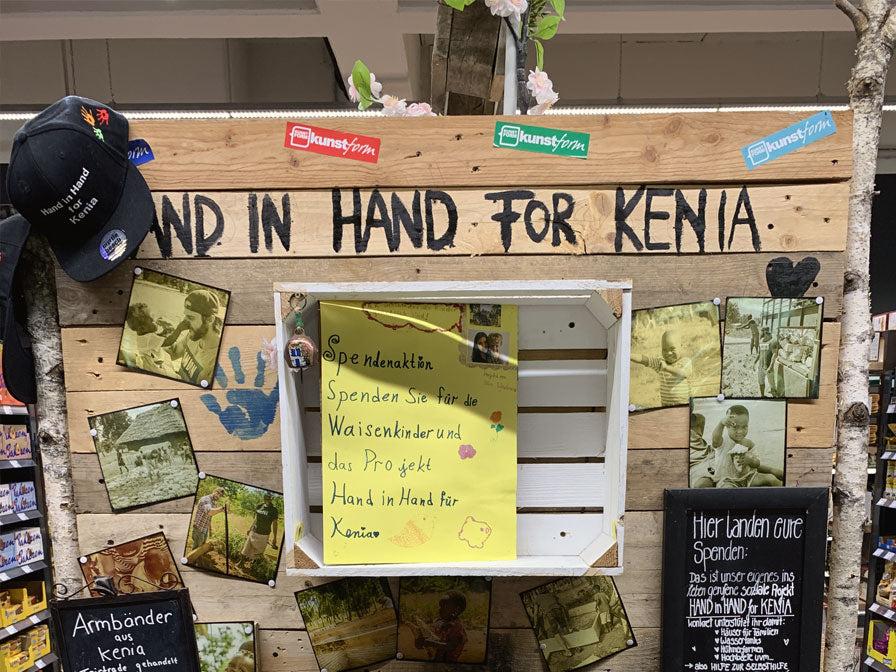 kunstform
kunstform
kunstform
Hand in Hand
for
Kenia
HAND IN HAND FOR KENIA
Spendenaktion
Spenden Sie für die
Waisenkinder und
das Projekt
Hand in Hand für
Kenia
Hier landen eure
Spenden:
Das ist unser eigenes ins
Leben gerufene soziale Projekt
HAND in HAND for KENIA
konkret unterstützt ihr damit:
Häuser für Familien
Wassertanks
Hühnerfarmen
Hochbeete uvm...
also HILFE ZUR SELBSTHILFE
Armbänder
aus
Kenia
Fairtrade gehandelt